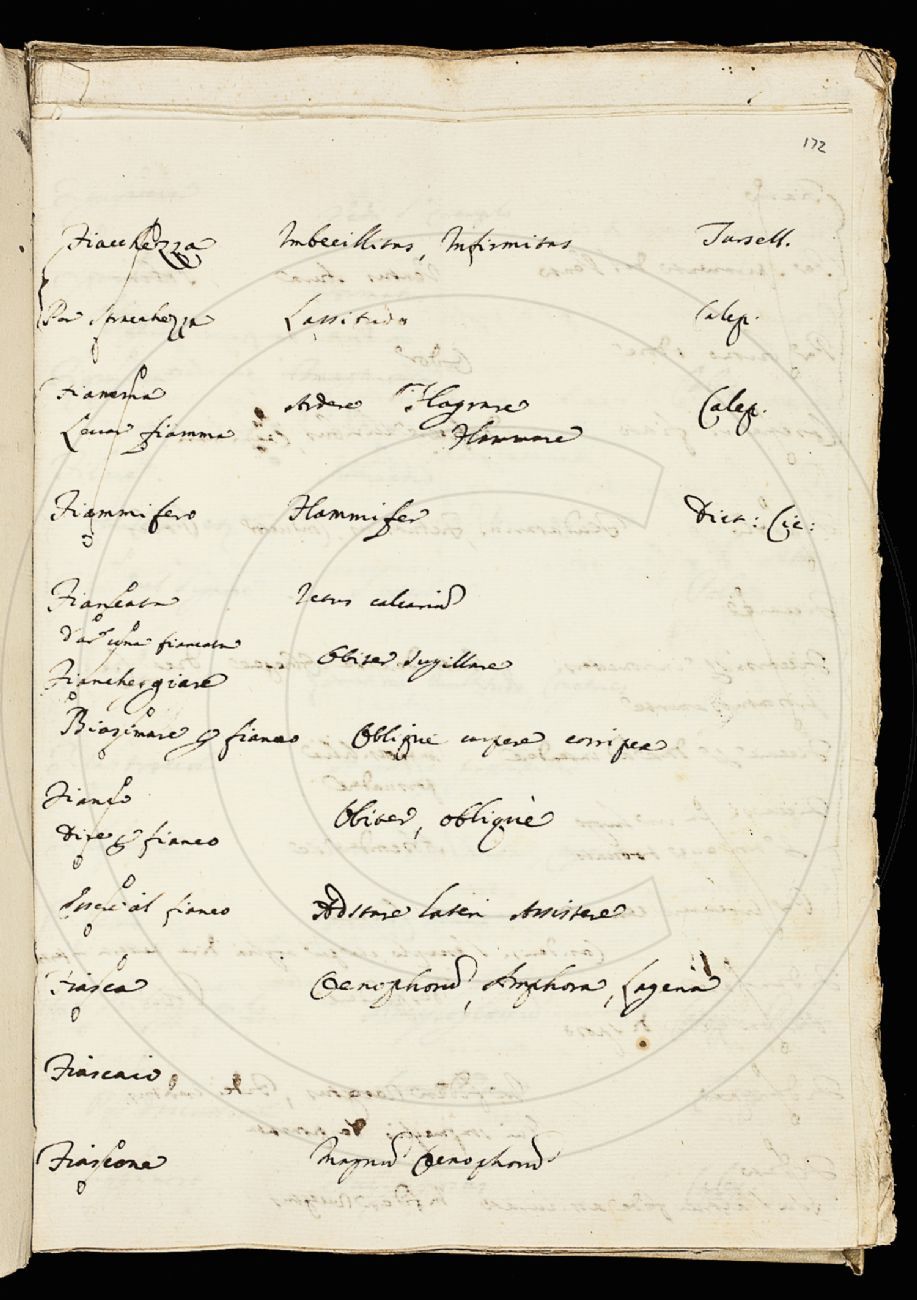 172
Fiacchezza Imbecillitas, Infirmitas Tursell.
Per stracchezza Lassitudo Calep.
Fiamma
Ardere Flagrare Calep.
Levar fiamma Flammare
Fiammifero Flammifer Dict: Cic:
Fiancata Ictus calcariũ
Dar una fiancata
Obiter sugillare
Fiancheggiare
Biasimare p fianco Obliquè carpere corripere
Fianco
Obiter, obliquè
Dire p fianco
Essere al fianco Adstare lateri Assistere
Fiasca Oenophorũ, Amphora, Lagena
Fiascaio
Fiascone Magnũ Oenophorũ